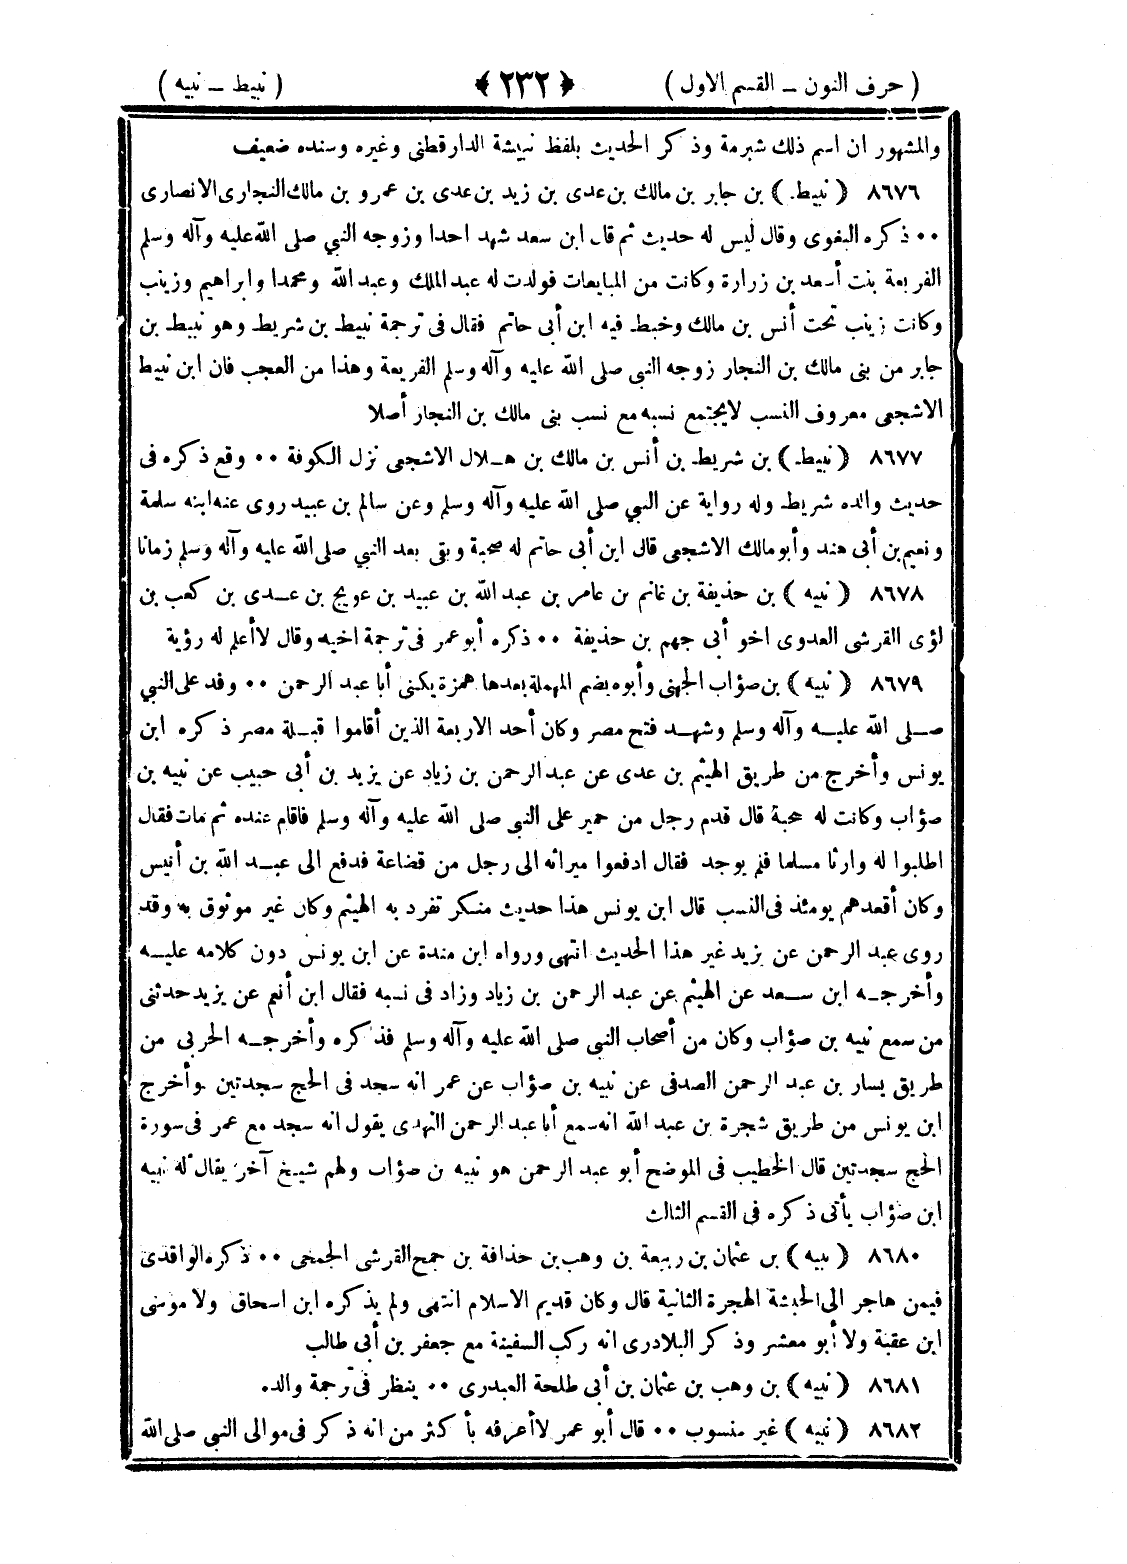 ( حرف النون ــ القسم الاول ) ﴿ ٢٣٢ ﴾ ( نبيط ــ نبيه )
والمشهور ان اسم ذلك شبرمة وذكر الحديث بلفظ نبيشة الدارقطنى وغيره وسنده ضعيف
٨٦٧٦ ( نبيط ) بن جابر بن مالك بن عدى بن زيد بن عدى بن عمرو بن مالك النجارى الانصارى
٠٠ ذكره البغوى وقال ليس له حديث ثم قال ابن سعد شهد احدا وزوجه النبي صلى الله عليه وآله وسلم
الفريعة بنت أسعد بن زرارة وكانت من المبايعات فولدت له عبد الملك وعبد الله ومحمدا وابراهيم وزينب
وكانت زينب تحت أنس بن مالك وخبط فيه ابن أبى حاتم فقال فى ترجمة نبيط بن شريط وهو نبيط بن
جابر من بنى مالك بن النجار زوجه النبى صلى الله عليه وآله وسلم الفريعة وهذا من العجب فان ابن نبيط
الاشجعى معروف النسب لايجتمع نسبه مع نسب بنى مالك بن النجار أصلا
٨٦٧٧ ( نبيط ) بن شريط بن أنس بن مالك بن هـلال الاشجعى نزل الكوفة ٠٠ وقع ذكره فى
حديث والده شريط وله رواية عن النبي صلى الله عليه وآله وسلم وعن سالم بن عبيد روى عنه ابنه سلمة
ونعيم بن أبى هند وأبومالك الاشجعى قال ابن أبى حاتم له صحبة وبقى بعد النبي صلى الله عليه وآله وسلم زمانا
٨٦٧٨ ( نبيه ) بن حذيفة بن غانم بن عامر بن عبد الله بن عبيد بن عويج بن عـدى بن كعب بن
لؤى القرشى العدوى اخو أبى جهم بن حذيفة ٠٠ ذكره أبوعمر فى ترجمة اخيه وقال لاأعلم له رؤية
٨٦٧٩ ( نبيه ) بن صؤاب الجهنى وأبوه بضم المهملة بعدها همزة يكنى أبا عبد الرحمن ٠٠ وفد على النبي
صـلى الله عليـه وآله وسلم وشهـد فتح مصر وكان أحد الاربعة الذين أقاموا قبـلة مصر ذكره ابن
يونس وأخرج من طريق الهيثم بن عدى عن عبد الرحمن بن زياد عن يزيد بن أبى حبيب عن نبيه بن
صؤاب وكانت له صحبة قال قدم رجل من حمير على النبى صلى الله عليه وآله وسلم فاقام عنده ثم مات فقال
اطلبوا له وارثا مسلما فلم يوجد فقال ادفعوا ميراثه الى رجل من قضاعة فدفع الى عبـد الله بن أنيس
وكان أقعدهم يومئذ فى النسب قال ابن يونس هذا حديث منكر تفرد به الهيثم وكان غير موثوق به وقد
روى عبد الرحمن عن يزيد غير هذا الحديث انتهى ورواه ابن مندة عن ابن يونس دون كلامه عليـه
وأخرجـه ابن سـعد عن الهيثم عن عبد الرحمن بن زياد وزاد فى نسبه فقال ابن أنعم عن يزيد حدثنى
من سمع نبيه بن صؤاب وكان من أصحاب النبى صلى الله عليه وآله وسلم فذكره وأخرجـه الحربى من
طريق يسار بن عبد الرحمن الصدفى عن نبيه بن صؤاب عن عمر انه سجد فى الحج سجدتين وأخرج
ابن يونس من طريق شجرة بن عبد الله انه سمع أبا عبد الرحمن النهدى يقول انه سجد مع عمر فى سورة
الحج سجدتين قال الخطيب فى الموضح أبو عبد الرحمن هو نبيه بن صؤاب ولهم شيخ آخر يقال له نبيه
ابن صؤاب يأتى ذكره فى القسم الثالث
٨٦٨٠ ( نبيه ) بن عثمان بن ربيعة بن وهب بن حذافة بن جمح القرشى الجمحى ٠٠ ذكره الواقدى
فيمن هاجر الى الحبشة الهجرة الثانية قال وكان قديم الاسلام انتهى ولم يذكره ابن اسحاق ولا موسى
ابن عقبة ولا أبو معشر وذكر البلادرى انه ركب السفينة مع جعفر بن أبى طالب
٨٦٨١ ( نبيه ) بن وهب بن عثمان بن أبى طلحة العبدرى ٠٠ ينظر فى ترجمة والده
٨٦٨٢ ( نبيه ) غير منسوب ٠٠ قال أبو عمر لاأعرفه بأكثر من انه ذكر فى موالى النبى صلى الله